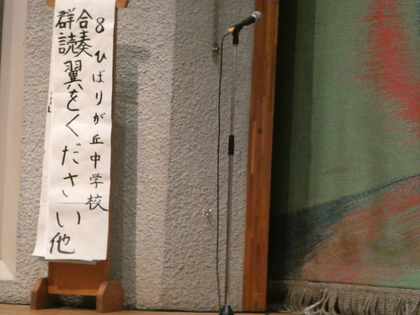 8 ひばりが丘中学校
合奏
群読 翼をください 他